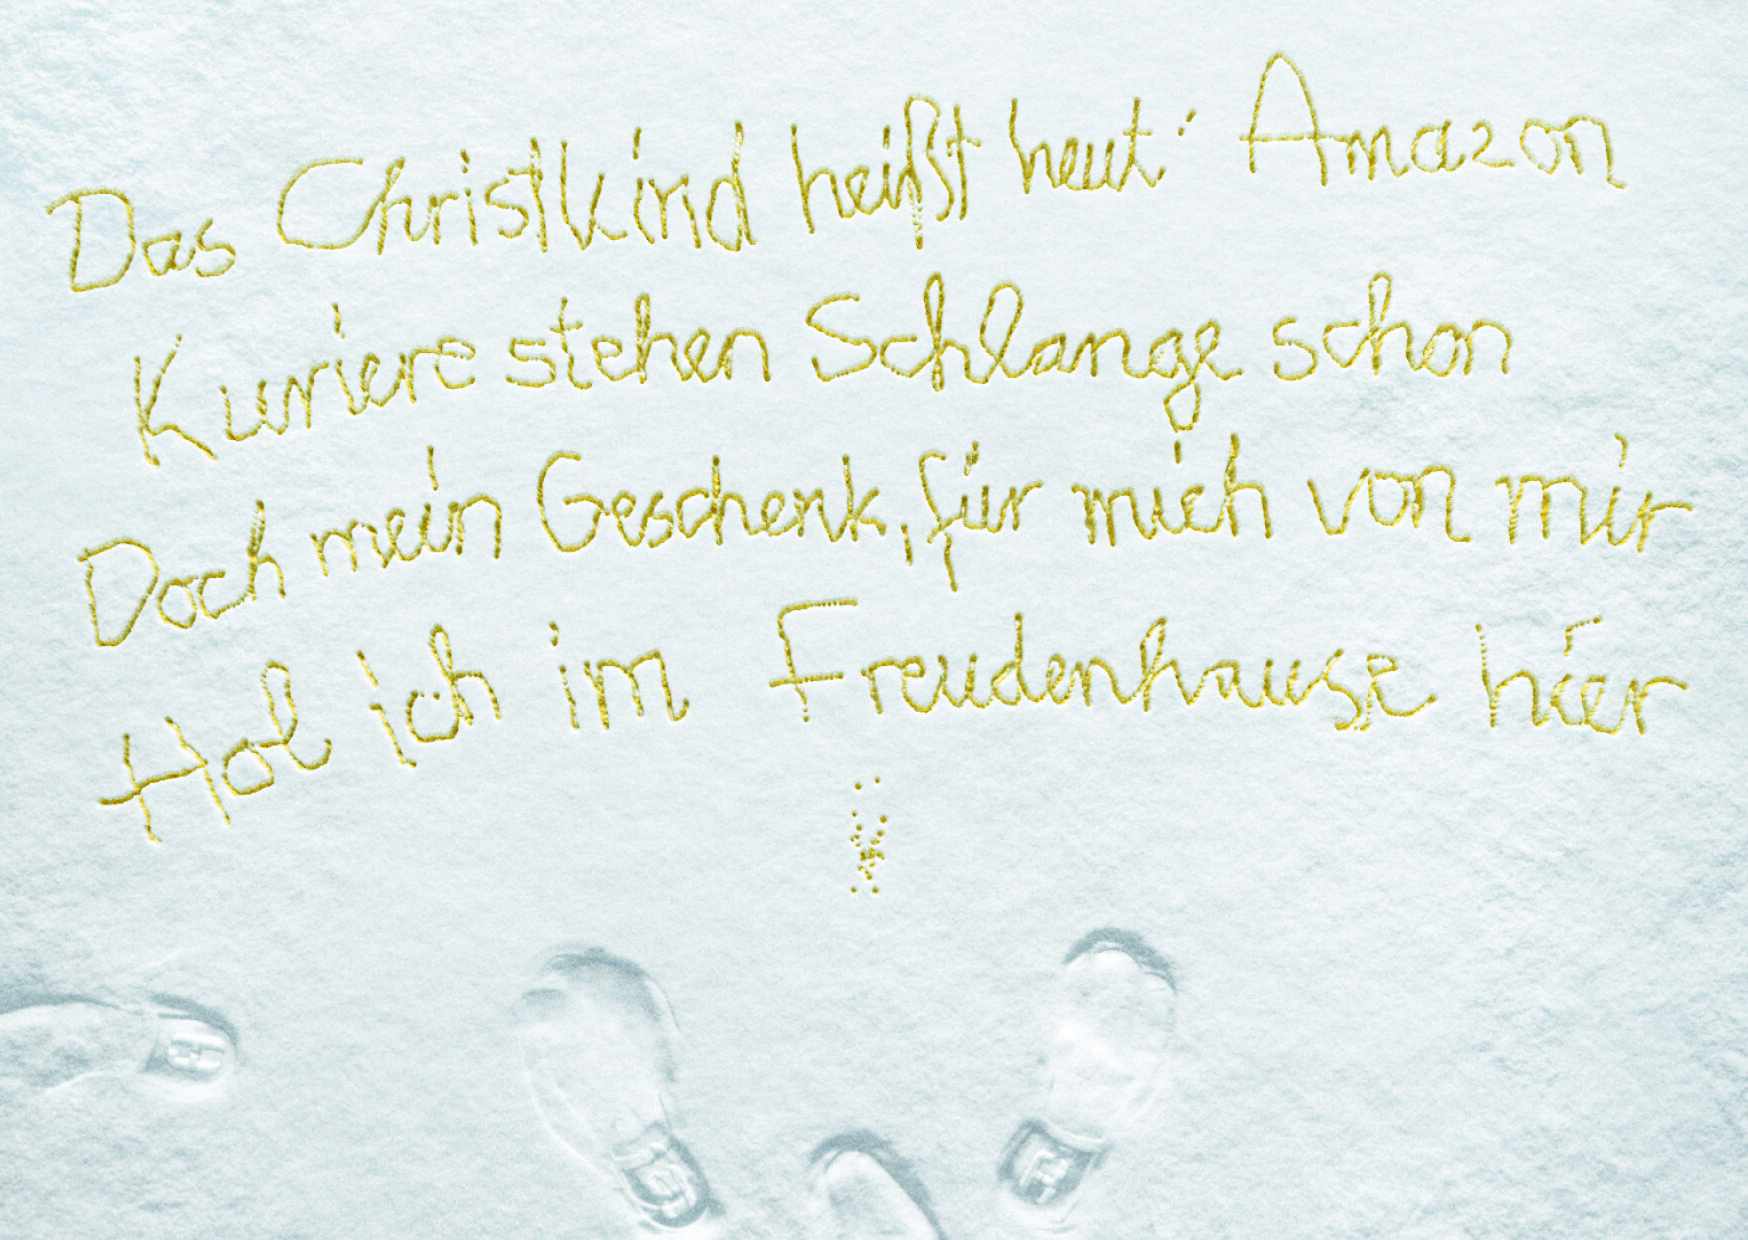 Das Christkind heißt heut' Amazon
Kuriere stehen Schlange schon
Doch mein Geschenk, für mich von mir
Hol ich im Freudenhause hier